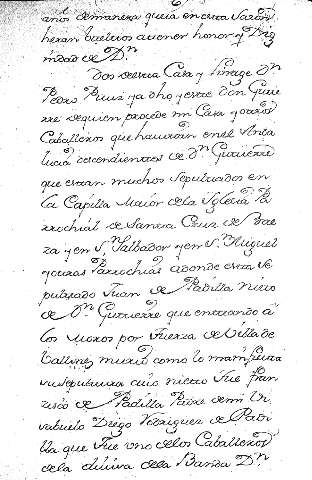 años demanera que ia en essa sazon
heran bueltos a tener honor y Dig
nidad de Dn
Dos de essa Casa y linage Dn
Pedro Ruiz ya dho y este Don Gutie
rre de quien procede mi Casa y otros
Caballeros que havitan en el Anda
lucia descendientes de Dn Gutierre
que estan muchos sepultados en
la Capilla Maior de la Yglesia Pa
rrochial de Santa Cruz de Bae
za y en Sn Salbador y en Sn Miguel
y otras Parrochias adonde esta se
pultado Juan de Padilla nieto
de Dn Gutierre que entrando a
los Moros por fuerza de Villa de
murio como lo manifiesta
su sepultura cuio nieto fue Fran
cisco de Padilla Padre de mi Vi
sabuelo Diego Yñiguez de Padi
lla que fue uno de los Caballeros
de la divisa de la Banda Dn